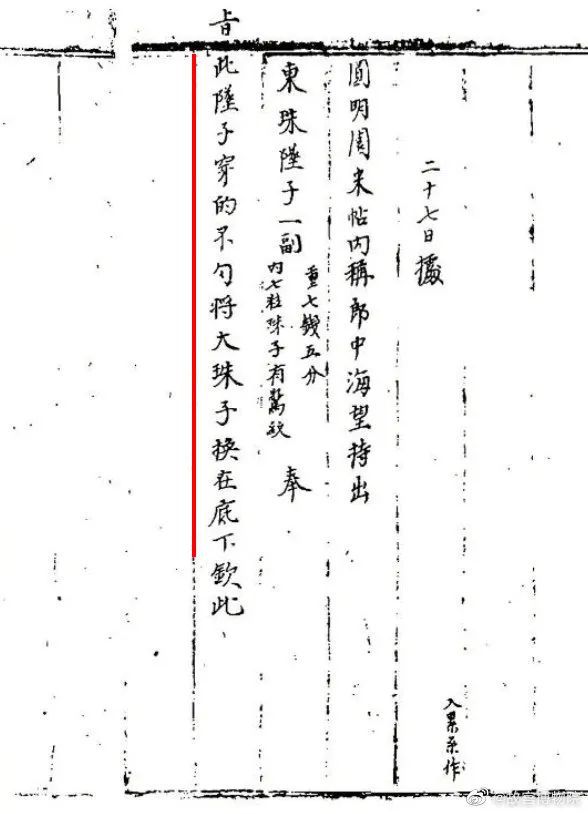 二十七日據
圓明園来帖内稱郎中海望持出
東珠墜子一副 重七錢五分 内七粒珠子有驚紋 奉
旨此墜子穿的不勻将大珠子换在底下欽此
入累系作
@故宫博物院